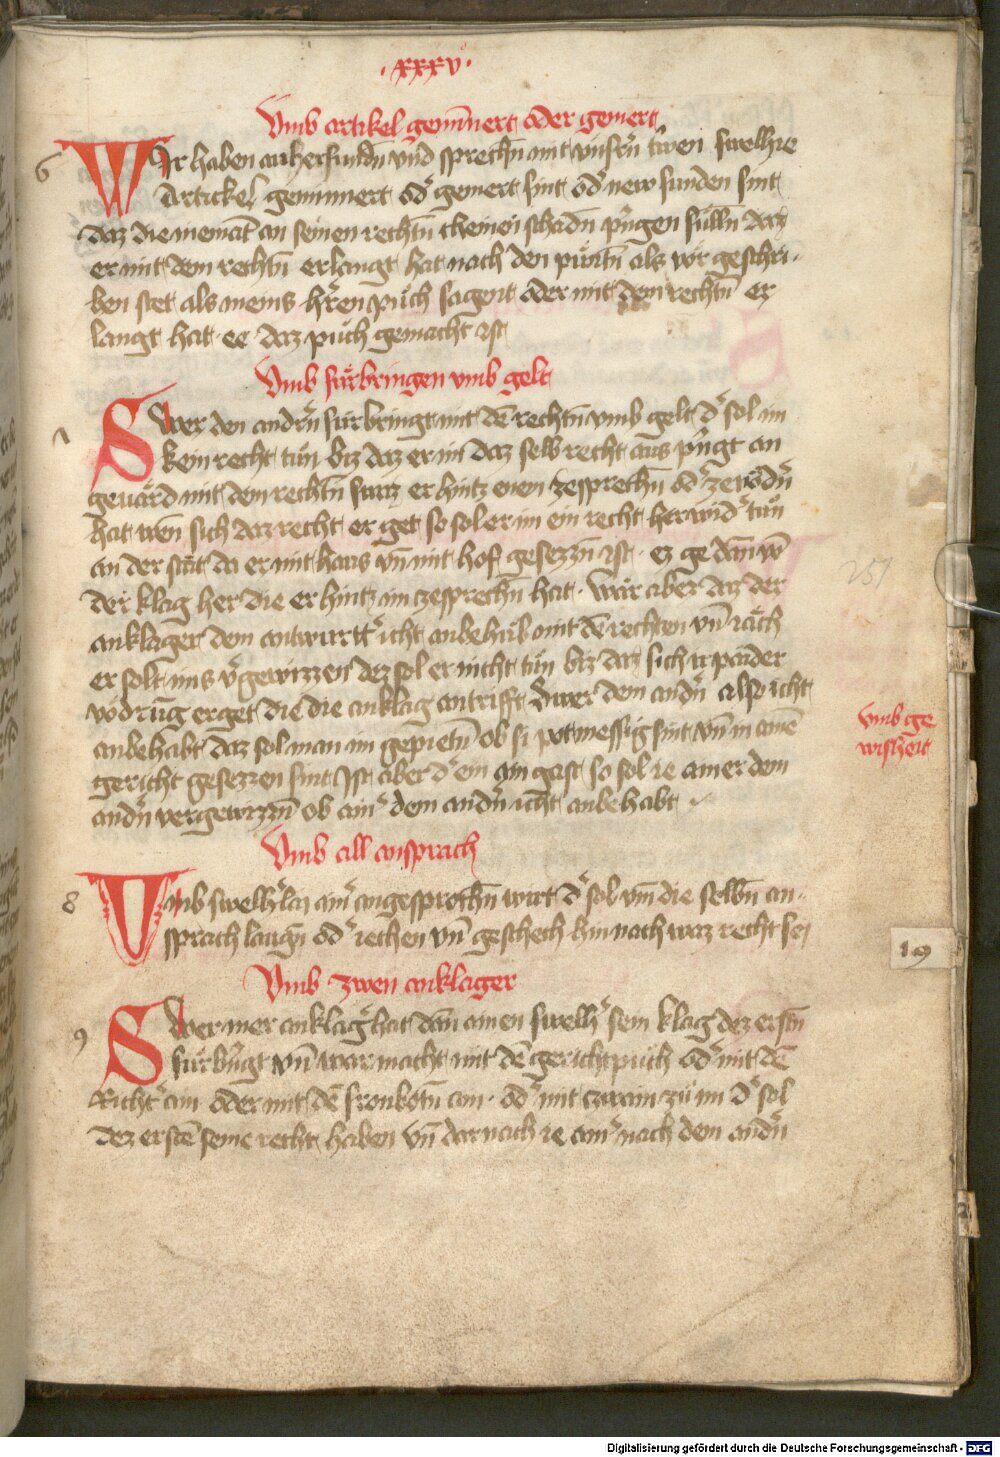 ·xxxv·
Vmb artikel geminnert oder gemert
6 Wir haben auch erfunden vnd sprechn̄ mit vnsrn̄ trwen swelhie
Artickel geminnert od' gemert sint od' new funden sint
daz die niemāt an seinen rechtn̄ cheinen schadn̄ pringen sulln̄ daz
er mit dem rechtn̄ erlangt hat nach den půntn̄ als vor geschri-
ben stet als meins hr̄en půch sagent oder mit dem rechtn̄ er
langt hat ee daz půch gemacht ist
Vmb fürbringen vmb gelt
7 Swer den andrn̄ fürbringt mit dē rechtn̄ vmb gelt d' sol im
kein recht tůn biz daz er mit daz selb recht aus pringt an
geuärd mit dem rechtn̄ swaz er hintz enem zesprechn̄ od' zevodn̄
hat wen̄ sich daz recht erget so sol er im ein recht herwid' tůn
an der stat da er mit haus vn̄ mit hof gesezzn̄ ist · ez ge dan̄ v̄
der klag her die er hintz im zesprechn̄ hat · wär aber daz der
anklager dem antwurtt' icht anbehůb mit dē rechten vn̄ iäch
er solt ims v'gewizzen dez sol er nicht tůn biz daz sich ir payder
vodrūg erget die die anklag antrifft Swer dem andn̄ also icht
anbehabt daz sol man im gepietn̄ ob si potmessig sint vn̄ in ainē
gericht gesezzen sint Ist aber d' ein ain gast so sol ie ainer dem
andn̄ vergewizzn̄ ob ain' dem andn̄ icht anbehabt
vmb ge
wisheit
Vmb all ansprach
8 Vmb swelh'lay ain' angesprochn̄ wirt d' sol vm̄ die selbn̄ an-
sprach laugn̄ od' iechen vn̄ geschech hin nach waz recht sei
19
Vmb zwen anklager
9 Swer mer anklag' hat dan̄ ainen swelh' sein klag dez erstn̄
fürbringt vn̄ war macht mit dē gerichtpůch od' mit dē
Richt' ain oder mit dē fronbotn̄ ain · od' mit zwain zů im d' sol
dez erstē seine recht haben vn̄ darnach ie ain' nach dem andn̄
251
Digitalisierung gefördert durch die Deutsche Forschungsgemeinschaft - DFG